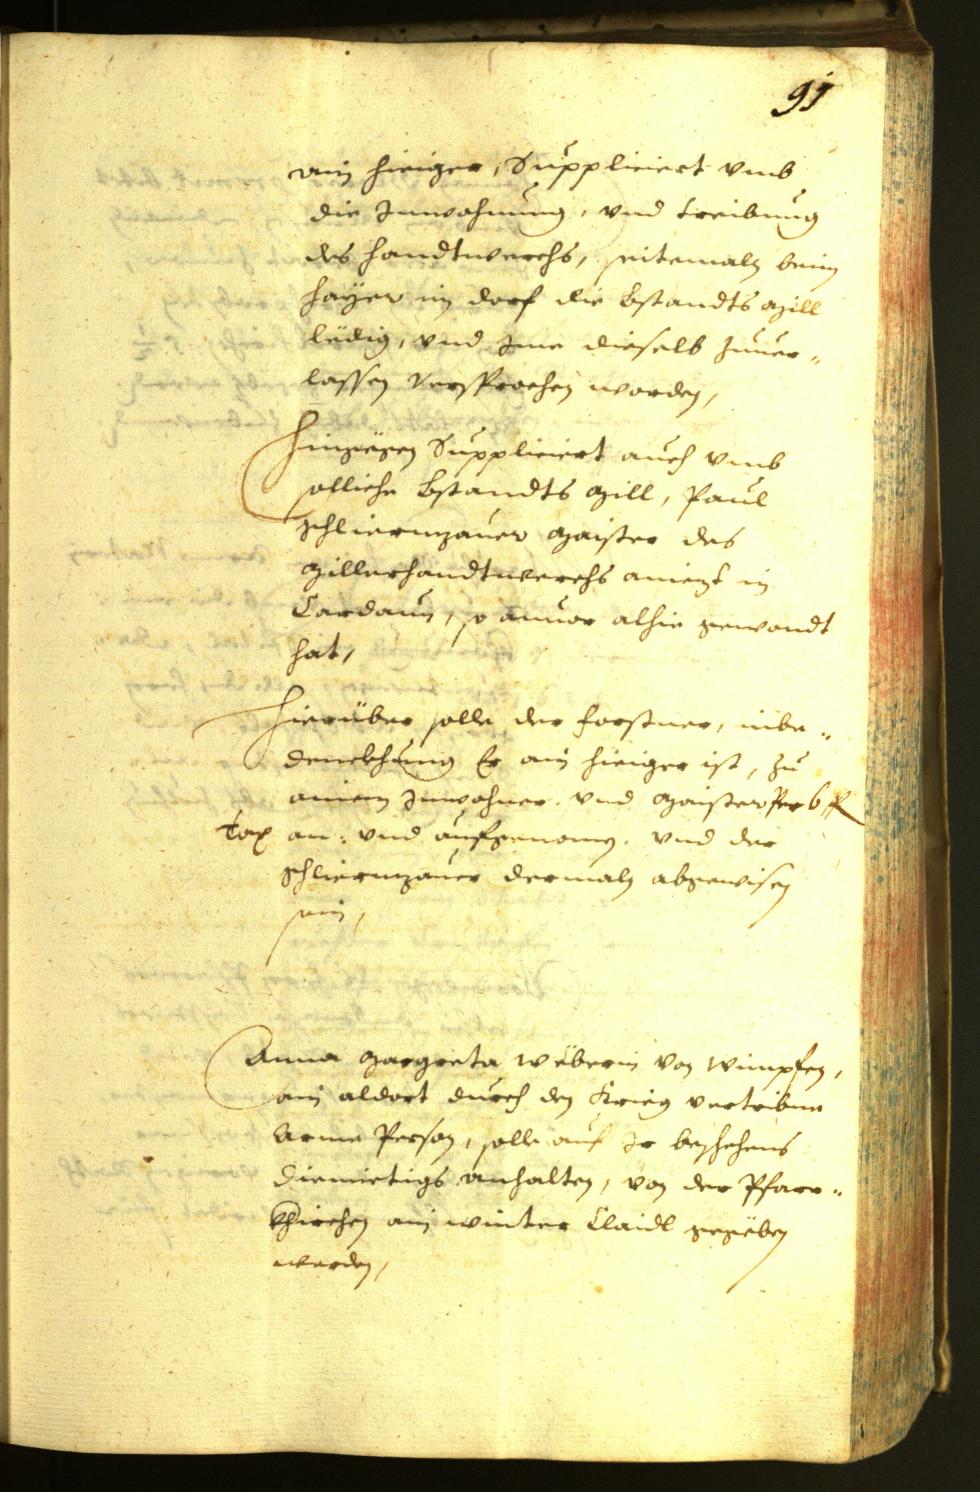 91
ain hieiger, Suppliciert vmb
die Inwohnung, vnd treibung
des handtwerchs, seitemaln beim
Hayer im dorf die bstandts Mill
ledig, vnd Ime dieselb zuuer-
lassen versprochen worden,
Hingegen Suppliciert auch vmb
solliche bstandts Mill, Paul
Schliermzauer Maister des
Millerhandtwerchs aniezt in
Cardaun, so anuor alhie gewondt
hat,
Hierüber solle der Forstner, inbe-
denckhung Er ain hieiger ist, zu
ainem Inwohner vnd Maister Per 6 fl
Tax an: vnd aufgenomen. vnd der
Schliermzauer dermaln abgewisen
sein,
Anna Margreta Weberin von Wimpfen,
ain aldort durch den Krieg vertribne
Arme Person, solle auf Ir beschehens
Diemietigs anhalten, von der Pfarr-
khirchen ain winter Claidl gegeben
werden,